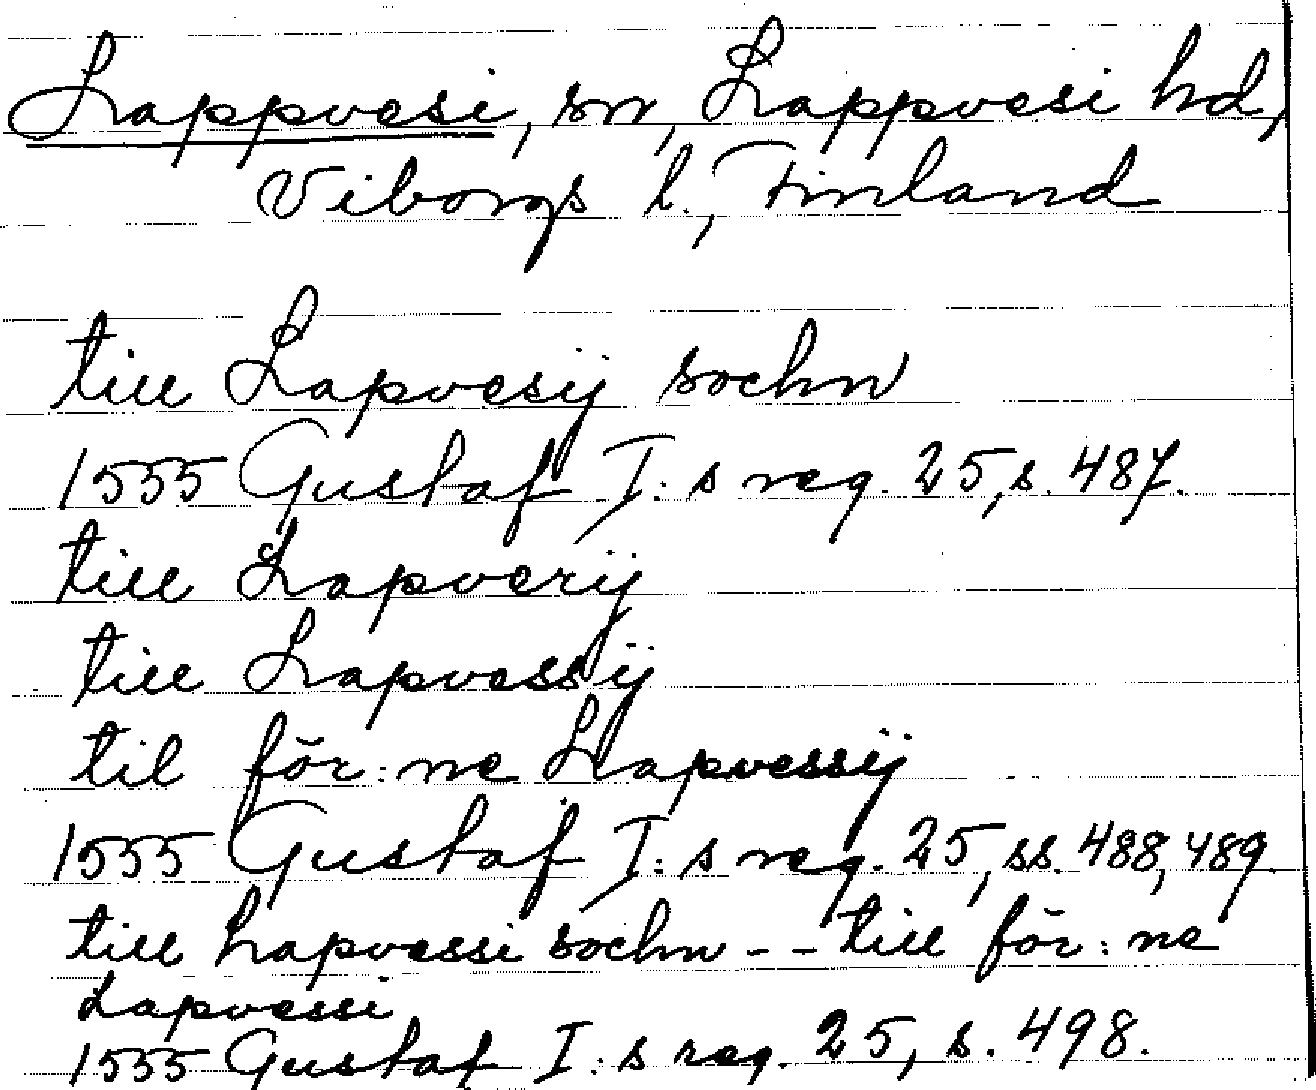 Lappvesi, sn, Lappvesi hd,
Viborgs l., Finland
till Lapvesij sochn
1555 Gustaf I:s reg. 25, s. 487.
till Lapverij
till Lapvessij
til för:ne Lapvessij
1555 Gustaf I:s reg. 25, ss. 488, 489.
till Lapvessi sochn - - till för:ne
Lapvessi
1555 Gustaf I:s reg. 25, s. 498.